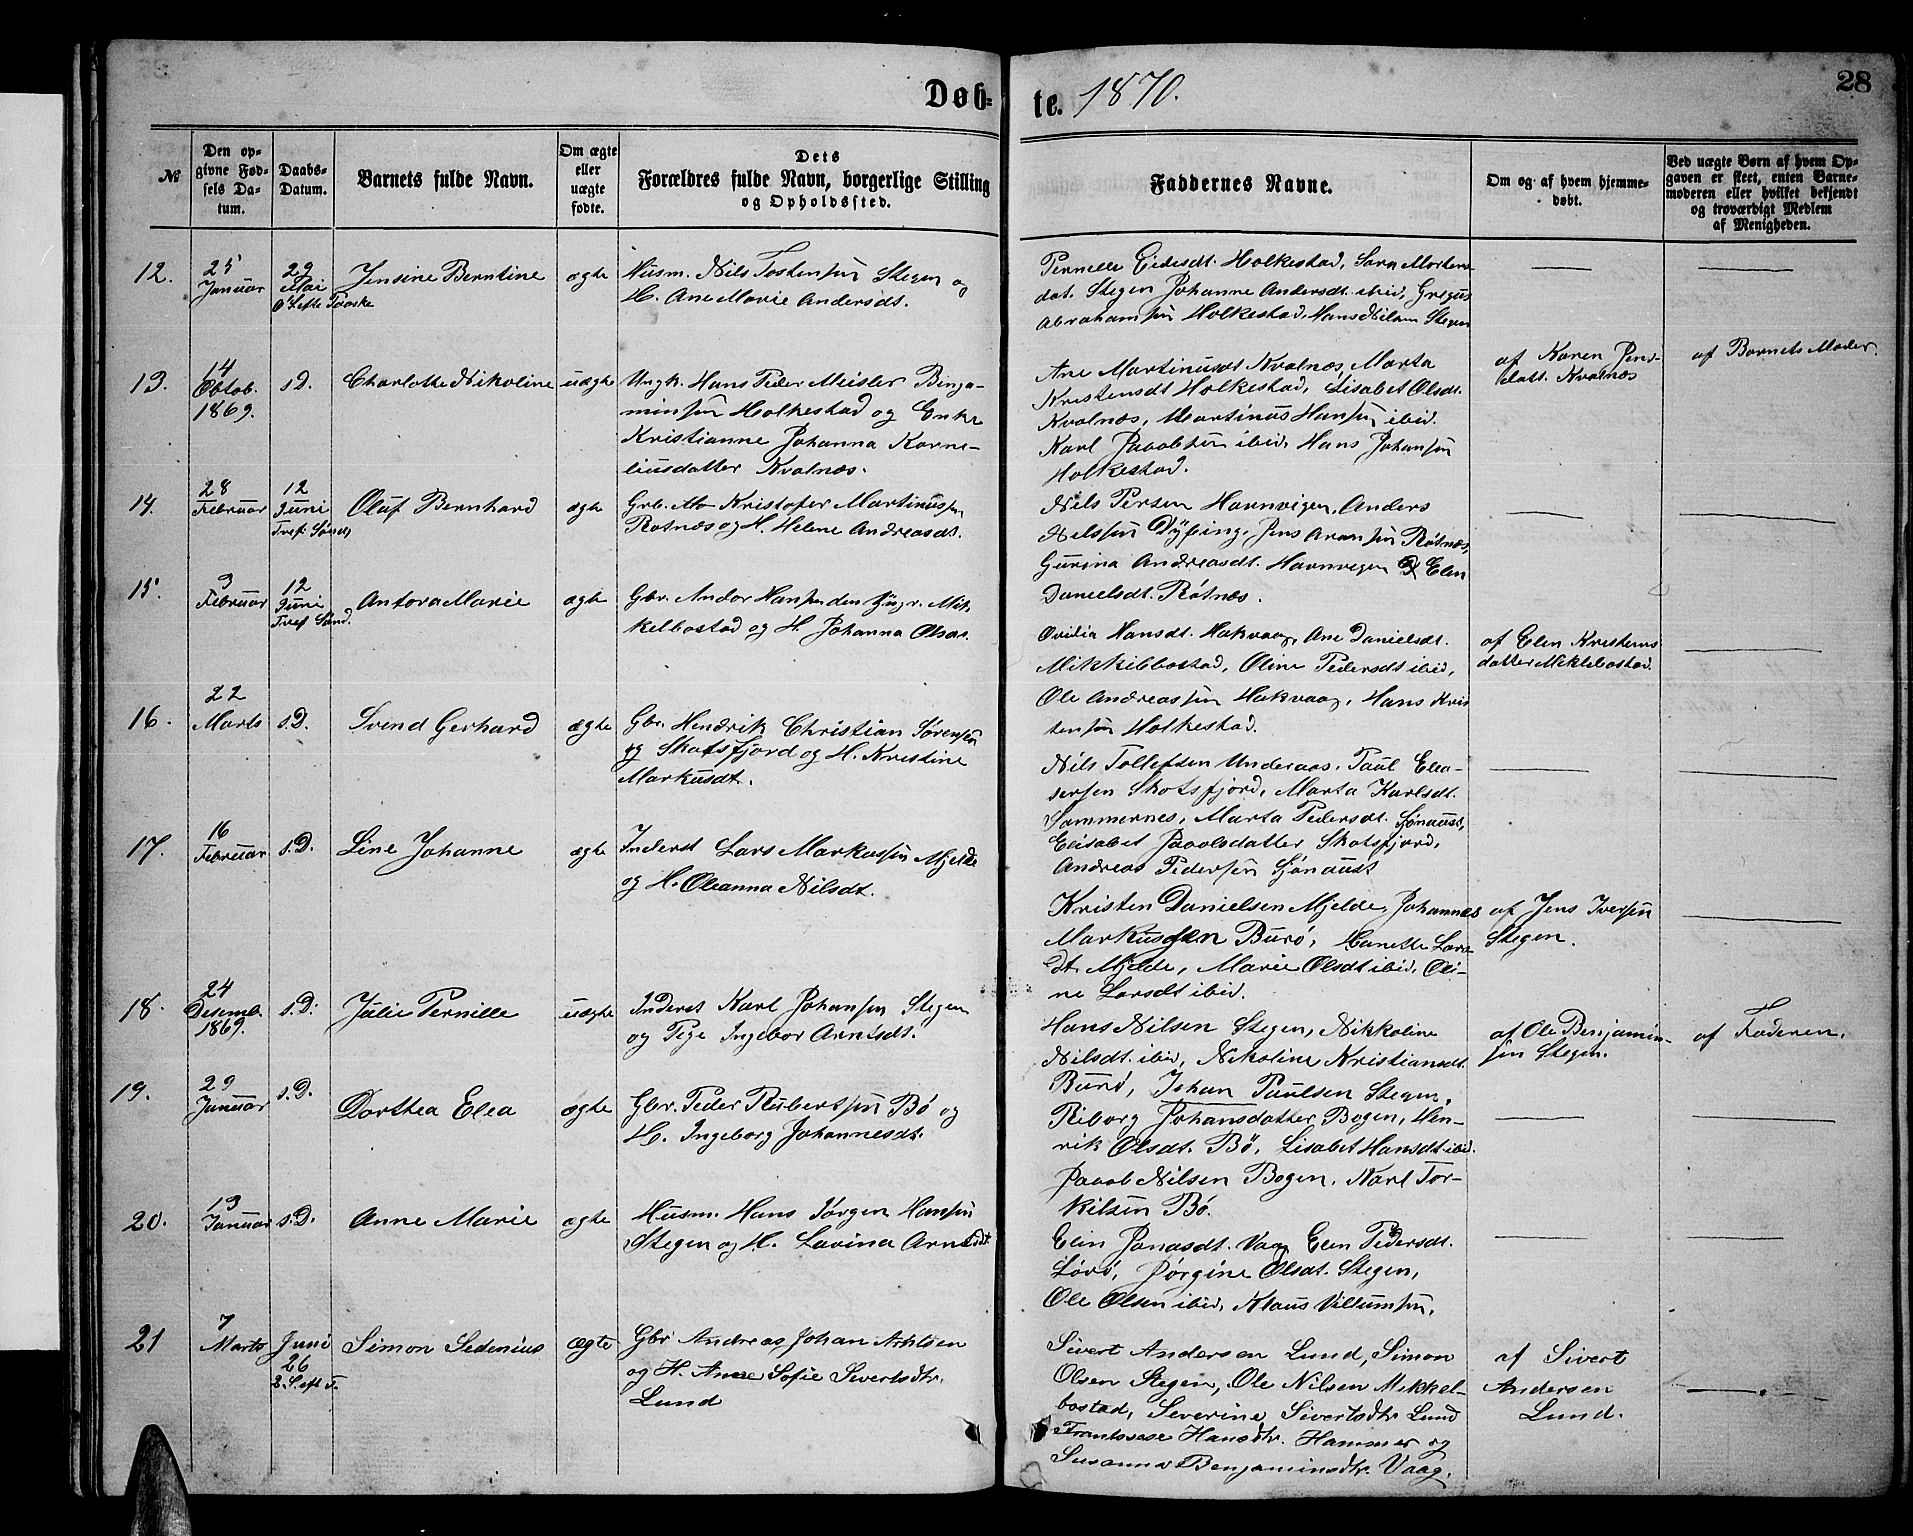 Døb=
te. 1870.
28
№
Den op-
givne Fød-
sels Da-
tum.
Daabs-
Datum.
Barnets fulde Navn.
Om ægte
eller
uægte
fødte.
Dets
Forældres fulde Navn, borgerlige Stilling
og Opholdssted.
Faddernes Navne.
Om og af hvem hjemme-
døbt.
Ved uægte Børn af hvem Op-
gaven er skeet, enten Barne-
moderen eller hvilket bekjendt
og troværdigt Medlem
af Menigheden.
12.
25
Januar
29
Mai
Jensine Berntine
ægte
Husm. Nils Tostensen Stegen og
H. Ane Marie Andersdt.
Pernelle Eidesdt. Holkestad, Sara Mortens
dat. Stegen Johanne Andersdt. ibid, Gregus
Abrahamsen Holkestad, Hans Nilsen Stegen
13.
14
Oktob.
1869.
s.D.
Charlotte Nikoline
uægte
Ungk. Hans Peder Meisler Binja-
minsen Holkestad og Enke
Kristianne Johanna Korne-
liusdatter Kvalnæs.
Ane Martinusdt Kvalnæs, Marta
Kristensdt Holkestad, Lisabet Olsdt.
Kvalnæs, Martinus Hansen ibid.
Karl Jacobsen ibid, Hans Johansen
Holkestad.
af Karen Jens-
datt. Kvalnæs
af Barnets Moder.
14.
28
Februar
12
Juni
Tref. Sønd.
Oluf Bernhard
ægte
Grb. Kristofer Martinussen
Røtnæs og H. Helene Andreasdt.
Nils Persen Havnvigen, Anders
Nilssen Dyping, Jens Aronsen Røtnæs,
Gurina Andreasdt. Havnvegen Elen
Danielsdt. Røtnæs.
15.
3
Februar
12
Juni
Tref. Sønd.
Antora Marie
ægte
Gbr. Andor Hansen den Yngr. Mik
kelbostad og H. Johanna Olsdt.
Ovidia Hansdt. Hakvaag, Ane Danielsdt.
Mikkelbostad, Oline Pedersdt ibid,
Ole Andreassen Hakvaag, Hans Kris
tensen Holkestad.
af Elen Kristens
datter Miklebostad.
16.
22
Marts
s.D.
Svend Gerhard
ægte
Gbr. Hendrik Christian Sørensen
Skotsfjord og H. Kristine
Markusdt.
Nils Tollefsen Underaas, Paul Elea-
sersen Skotsfjord, Marta Karlsdt.
Sommernes, Marta Pedersdt. Sjønaust,
Elisabet Paavlsdatter Skotsfjord,
Andreas Pedersen Sjønaust
17.
16
Februar
s.D.
Line Johanne
ægte
Inderst Lars Markussen Mjelde
og H. Oleanna Nilsdt.
Kristen Danielsen Mjelde, Johannes
Markussen Burø, Hanette Lars
dt. Mjelde, Marie Olsdt ibid, Oli-
ne Larsdt ibid.
af Jens Iversen
Stegen.
18.
24
Desemb.
1869.
s.D.
Julie Pernille
uægte
Inderst Karl Johansen Stegen
og Pige Ingebor Arntsdt.
Hans Nilsen Stegen, Nikkoline
Nilsdt. ibid, Nikoline Kristiansdt.
Burø, Johan Paulsen Stegen.
af Ole Benjamin-
sen Stegen.
af Faderen.
19.
29
Januar
s.D.
Dorthea Elea
ægte
Gbr. Peder Rubertsen Bø og
H. Ingeborg Johannesdt.
Riborg Johansdatter Bogen, Hen-
rik Olsdt. Bø, Lisabet Hansdt ibid.
Jacob Nilsen Bogen, Karl Tor-
kilsen Bø.
20.
13
Januar
s.D.
Anne Marie
ægte
Husm. Hans Jørgen Hansen
Stegen og H. Lovina Arntsdt
Elen Jonasdt. Vaag Elen Pedersdt.
Lørø, Jørgine Olsdt. Stegen,
Ole Olsen ibid, Klaus Villumsen.
21
7
Marts
Juni
26
2. S. eft T.
Simon Sedenius
ægte
Gbr Andreas Johan Arntsen
og H. Anne Sofie Sivertsdtr.
Lund
Sivert Andersen Lund, Simon
Olsen Stegen, Ole Nilsen Mikkel-
bostad, Severine Sivertsdtr Lund
Frantsese Hansdtr. Hammer og
Susanna Benjaminsdtr. Vaag.
af Sivert
Andersen
Lund.